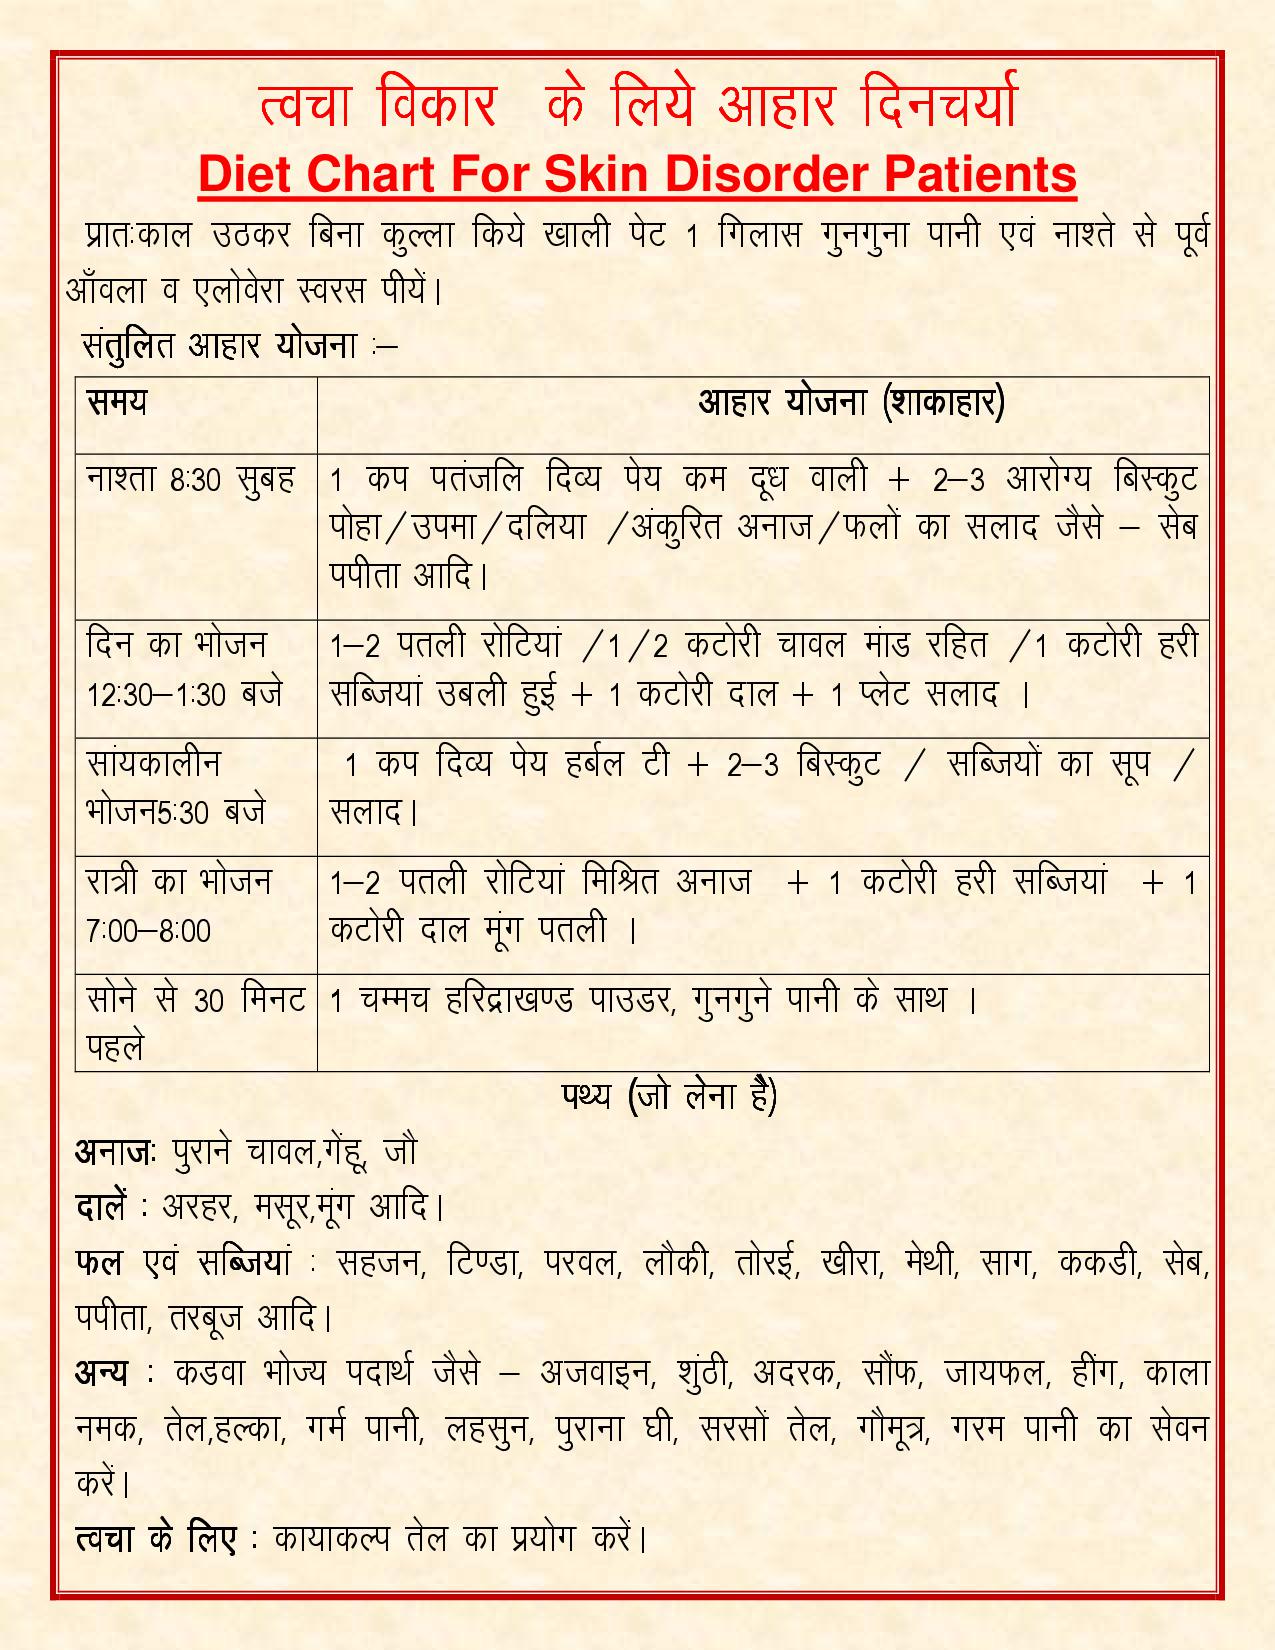 त्वचा विकार के लिये आहार दिनचर्या
Diet Chart For Skin Disorder Patients
प्रातःकाल उठकर बिना कुल्ला किये खाली पेट 1 गिलास गुनगुना पानी एवं नाश्ते से पूर्व
आँवला व एलोवेरा स्वरस पीयें।
संतुलित आहार योजना :–
समय आहार योजना (शाकाहार)
नाश्ता 8:30 सुबह 1 कप पतंजलि दिव्य पेय कम दूध वाली + 2–3 आरोग्य बिस्कुट
पोहा/उपमा/दलिया /अंकुरित अनाज/फलों का सलाद जैसे – सेब
पपीता आदि।
दिन का भोजन 1–2 पतली रोटियां /1/2 कटोरी चावल मांड रहित /1 कटोरी हरी
12:30–1:30 बजे सब्जियां उबली हुई + 1 कटोरी दाल + 1 प्लेट सलाद ।
सांयकालीन 1 कप दिव्य पेय हर्बल टी + 2–3 बिस्कुट / सब्जियों का सूप /
भोजन5:30 बजे सलाद।
रात्री का भोजन 1–2 पतली रोटियां मिश्रित अनाज + 1 कटोरी हरी सब्जियां + 1
7:00–8:00 कटोरी दाल मूंग पतली ।
सोने से 30 मिनट 1 चम्मच हरिद्राखण्ड पाउडर, गुनगुने पानी के साथ ।
पहले
पथ्य (जो लेना है)
अनाज: पुराने चावल,गेंहू, जौ
दालें : अरहर, मसूर,मूंग आदि।
फल एवं सब्जियां : सहजन, टिण्डा, परवल, लौकी, तोरई, खीरा, मेथी, साग, ककडी, सेब,
पपीता, तरबूज आदि।
अन्य : कडवा भोज्य पदार्थ जैसे – अजवाइन, शुंठी, अदरक, सौंफ, जायफल, हींग, काला
नमक, तेल,हल्का, गर्म पानी, लहसुन, पुराना घी, सरसों तेल, गौमूत्र, गरम पानी का सेवन
करें।
त्वचा के लिए : कायाकल्प तेल का प्रयोग करें।